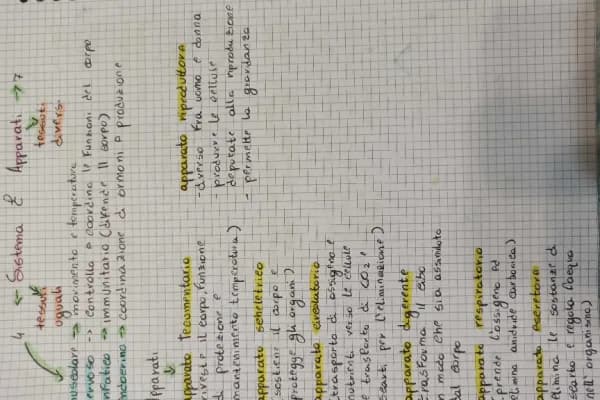 4 ← Sistema e Apparati → 7
tessuti uguali
tessuti diversi
muscolare → movimento e temperatura
nervoso → controlla e coordina le funzioni del corpo
linfatico → immunitario (difende il corpo)
endocrino → coordinazione d ormoni e produzione
Apparati
apparato Tecumentario
riveste il corpo, funzione
di protezione e
mantenimento temperatura)
apparato scheletrico
sostiene il corpo e
protegge gli organi)
apparato circolatorio
trasporto di ossigeno e
nutrienti verso le cellule
e trasporto di CO2 e
scarti, per l'eliminazione)
apparato digerente
trasforma il cibo
in modo che sia assimilato
dal corpo
apparato respiratorio
prende l'ossigeno ed
elimina anidride carbonica)
apparato escretore
elimina le sostanze di
scarto e regola l'acqua
nell'organismo)
apparato riproduttore
- diverso fra uomo e donna
- produrre le cellule
deputate alla riproduzione
- permette la gravidanza